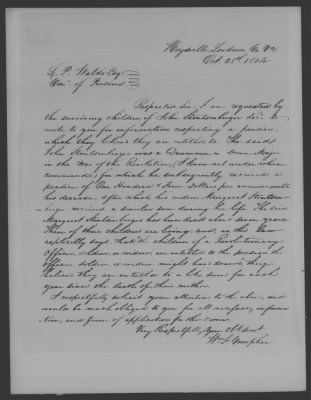 Hoysville, Loudoun Co. Va.
Oct. 25th 1854
L. P. Waldo Esq.
Com. of Pensions
Respected Sir, I am requested by
the surviving children of John Stoutsenberger dec'd. to
write to you for information respecting a pension
which they believe they are entitled to. The said
John Stoutsenberger was a Drummer or Drum Major
in the War of the Revolution, (I know not under whose
command,) for which he subsequently received a
pension of One Hundred & Four Dollars per annum until
his decease; after which his widow, Margaret Stoutsen-
berger received a similar sum during her life. The said
Margaret Stoutsenberger has been dead about seven years.
Three of their children are living; and, as the Law
expressly says that the children of a Revolutionary
officer, soldier, or widow are entitled to the pension the
officer, soldier, or widow might have drawn, they
believe they are entitled to a like sum for each
year since the death of their mother.
I respectfully solicit your attention to the above, and
would be much obliged to you for all necessary informa-
tion, and form of application for the same.
Very Respectfully, Your Obt. Servt.
Wm.